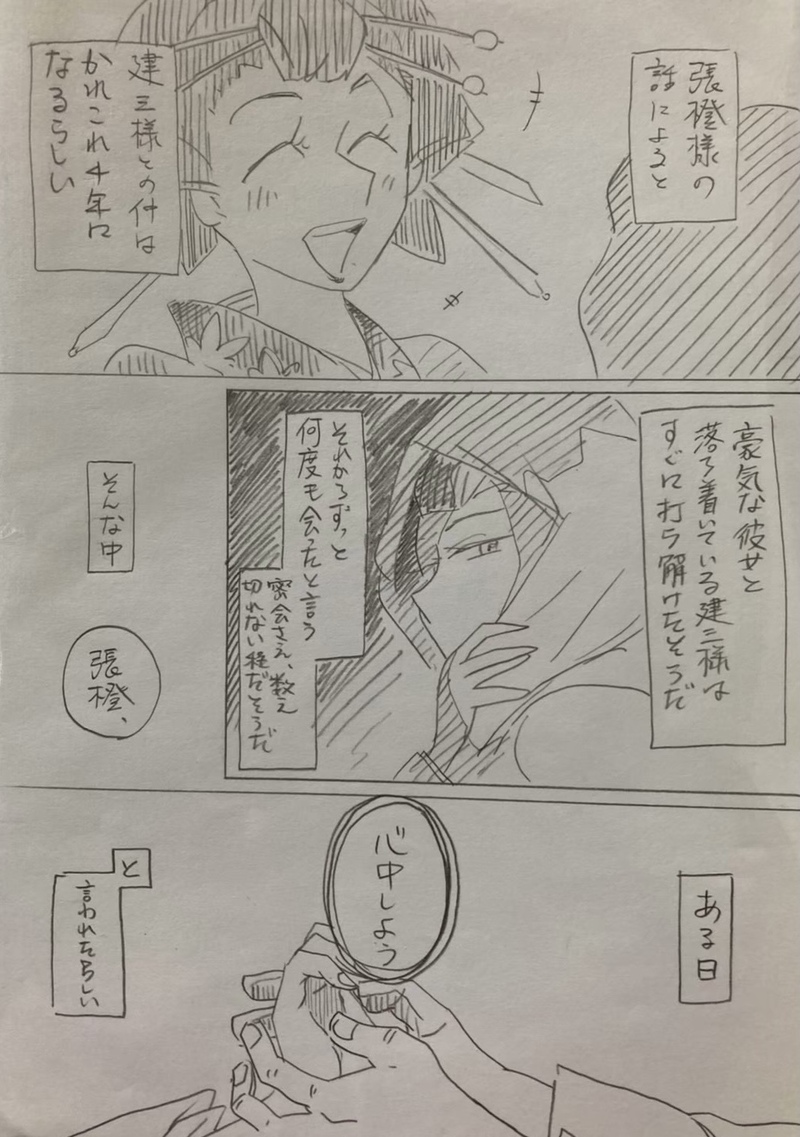 張橙様の
話によると
建三様との付は
かれこれ千年に
なるらしい
豪気な彼女と
落ち着いている建三様は
すぐに打ち解けたそうだ
それからずっと
何度も会たと言う
密会さえ、数え
切れない程だそうだ
そんな中
張橙、
ある日
心中しよう
と
言われたらしい